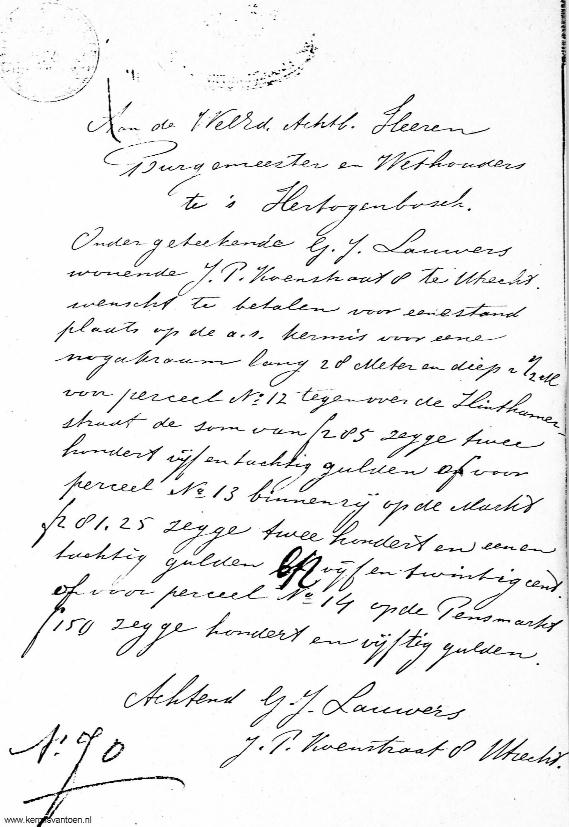 Aan de WelEd. Achtb. Heeren
Burgemeester en Wethouders
te 's Hertogenbosch.
Ondergeteekende G. J. Lauwers
wonende J. P. Koenstraat 8 te Utrecht.
wenscht te betalen voor eene stand
plaats op de a.s. kermis voor eene
nogakraam lang 28 Meter en diep 2 1/2 M
voor perceel No. 12 tegenover de Hinthamer-
straat de som van f 285 zegge twee
hondert vijf en tachtig gulden of voor
perceel No. 13 binnenrij op de Markt
f 281.25 zegge twee hondert en een en
tachtig gulden en vijf en twintig cent.
of voor perceel No. 14 op de Pensmarkt
f 150 zegge hondert en vijftig gulden.
Achtend G. J. Lauwers
J. P. Koenstraat 8 Utrecht.
N. 70
www.kermisvantoen.nl